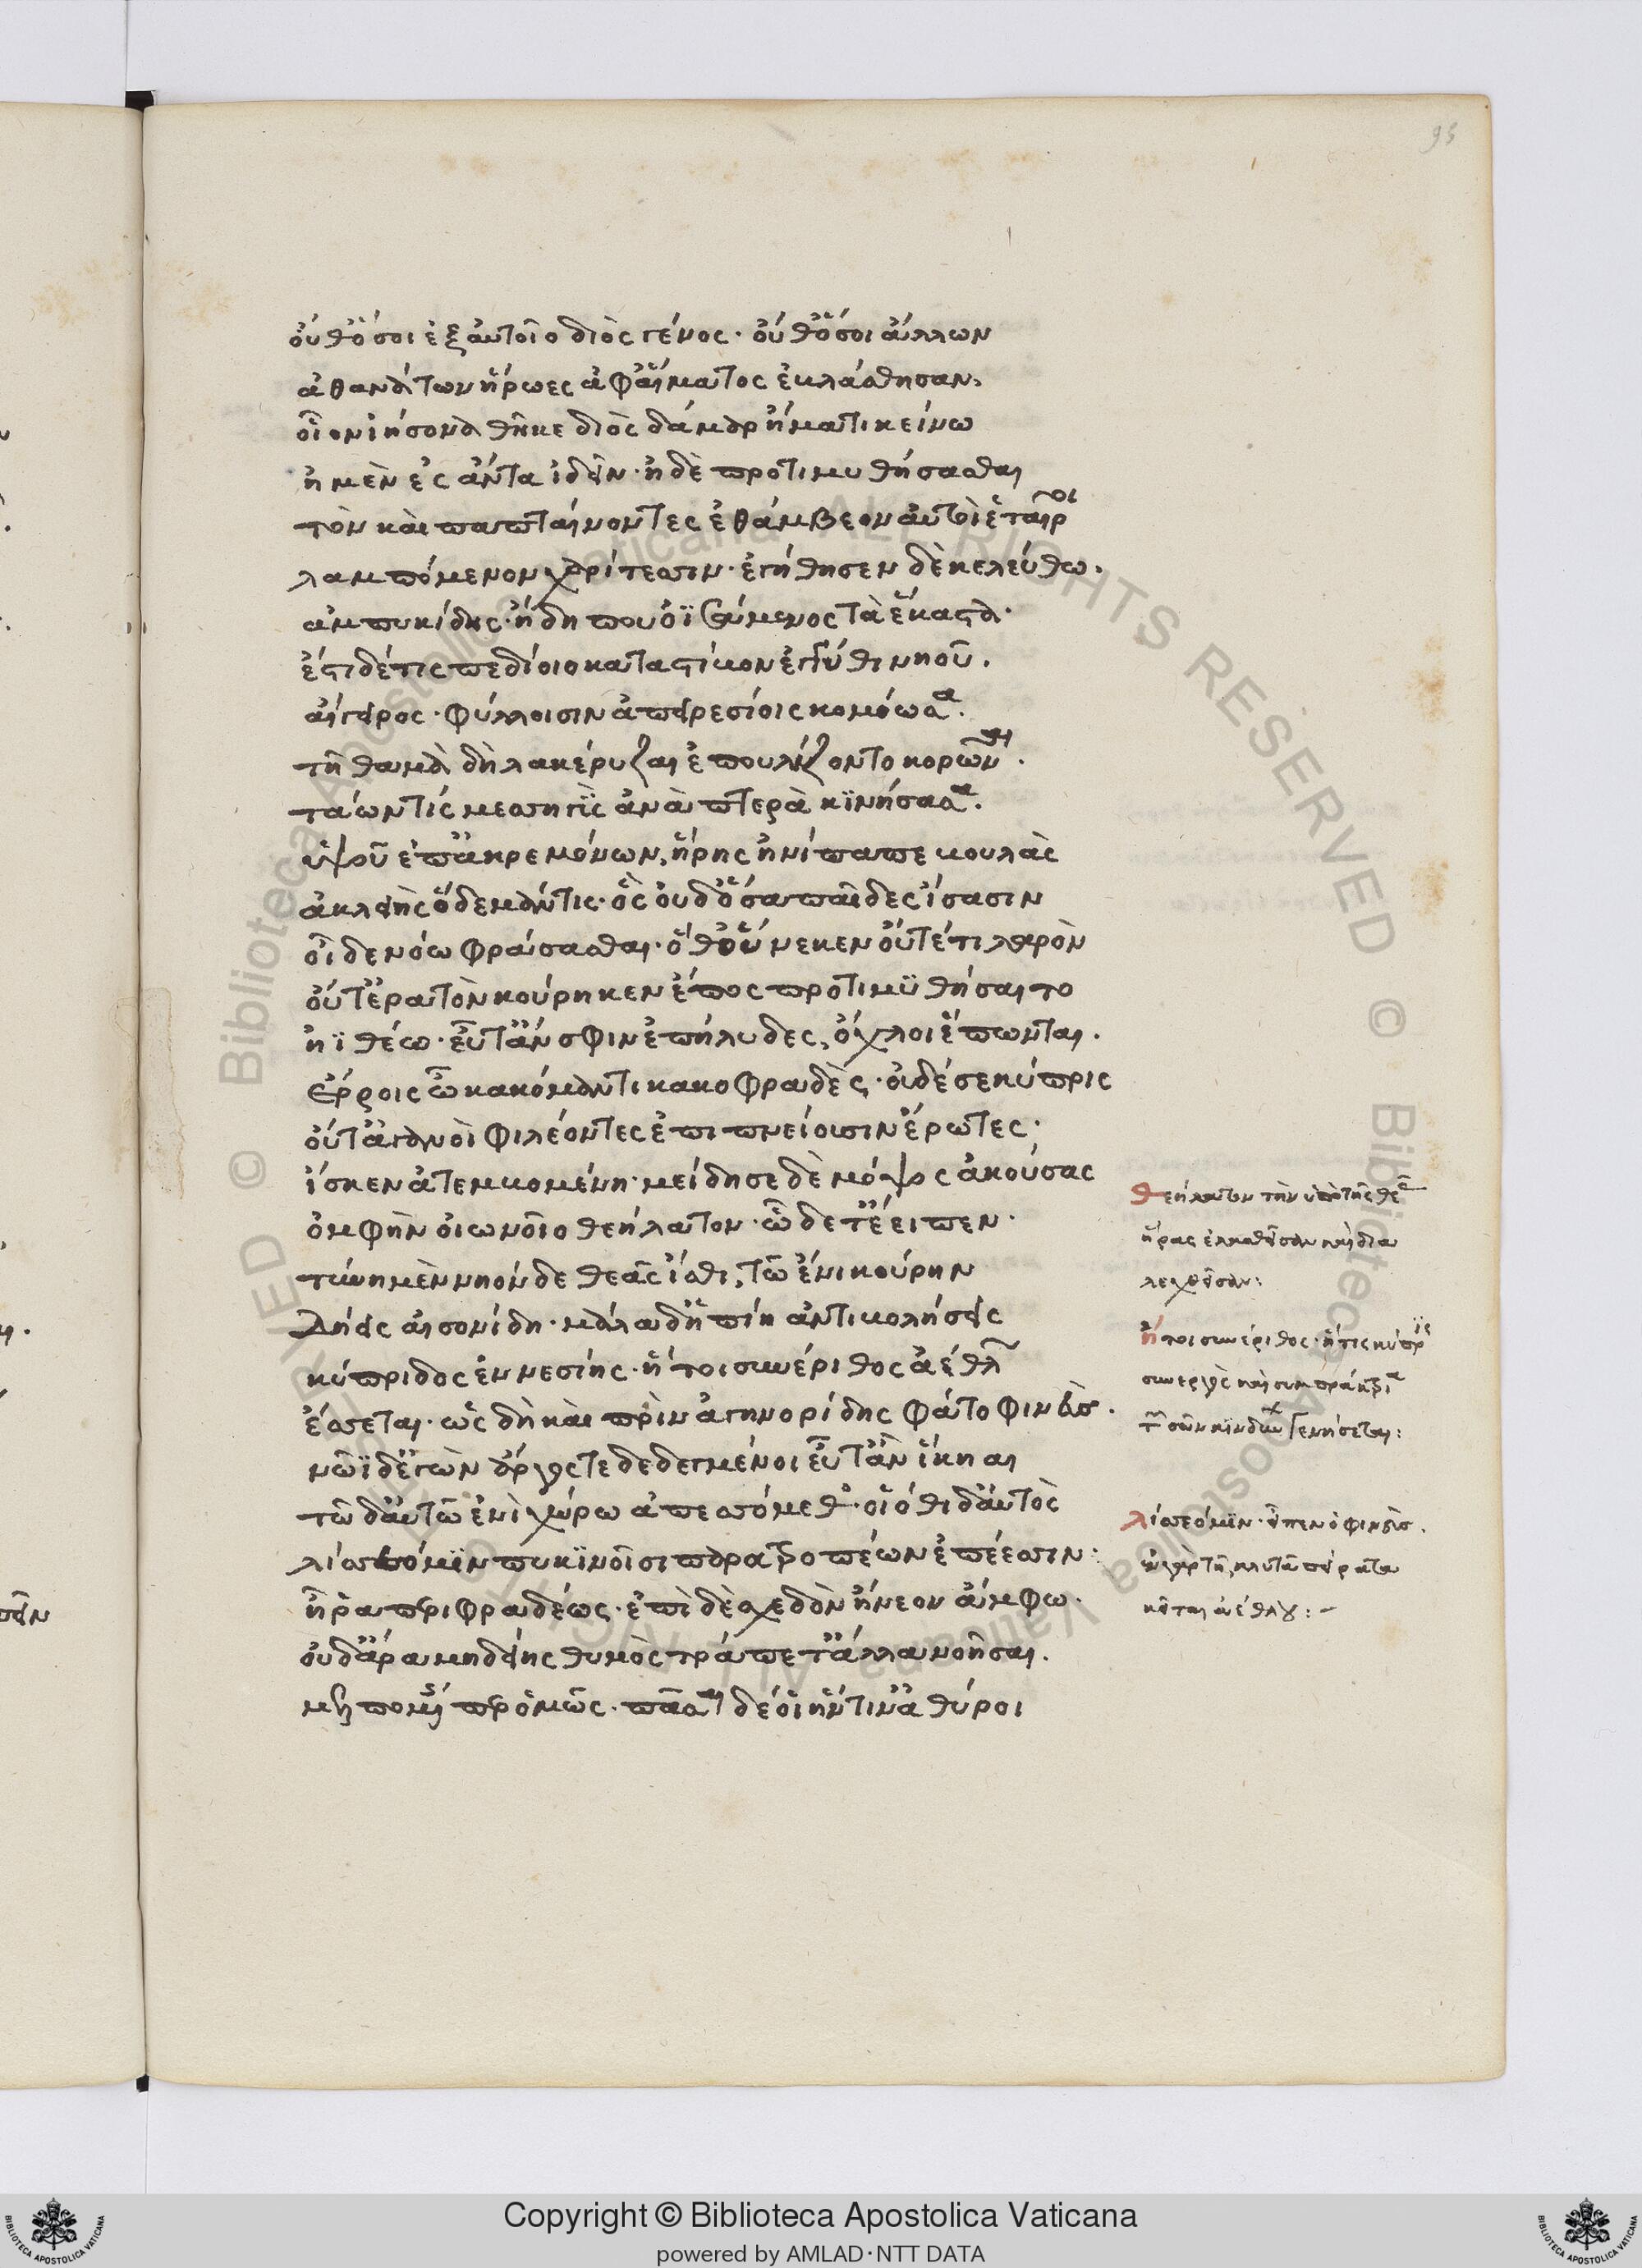 95
οὔθ' ὅσοι ἐξ αὐτοῖο διὸς γένος· οὔθ' ὅσοι ἄλλων
ἀθανάτων ἥρωες ἀφ' αἵματος ἐβλάστησαν,
οἷον ἰήσονα θῆκε διὸς δάμαρ ἤματι κείνω
ἠμὲν ἐς ἄντα ἰδεῖν· ἠδὲ προτιμυθήσασθαι
τὸν καὶ παπταίνοντες ἐθάμβεον αὐτοὶ ἑταῖροι
λαμπόμενον χαρίτεσσιν· ἐγήθησεν δὲ κελεύθω.
ἀμπυκίδης· ἤδη που ὀϊσσάμενος τὰ ἕκαστα·
ἔστι δέ τις πεδίοιο κατὰ στίβον ἐγγύθι νηοῦ.
αἴγειρος· φύλλοισιν ἀπειρεσίοις κομόωσα.
τῇ θαμὰ δὴ λακέρυζαι ἐπηυλίζοντο κορῶναι.
τάων τίς μεσηγῒς ἀνὰ πτερὰ κϊνήσασα.
ὑψοῦ ἐπ' ἀκρεμόνων, ἥρης ἠνίπαπε βουλὰς
ἀκλειὴς ὅδε μάντις· ὃς οὐδ' ὅσα παῖδες ἴσασιν
οἶδε νόω φράσασθαι· ὅθ' οὕνεκεν οὔτέ τι λαρὸν
οὔτ' ἐρατὸν κούρη κεν ἔπος προτιμϋθήσαιτο
ἠϊθέω· εὖτ' ἄν σφιν ἐπήλυδες, ὄχλοι ἕπωνται.
ἔρροις ὦ κακόμαντι κακοφραδὲς· οὐδέ σε κύπρις
οὔτ' ἀγανοὶ φιλέοντες ἐπιπνείουσιν ἔρωτες·
ἴσκεν ἀτεμβομένη· μείδησε δὲ μόψος ἀκούσας
ὀμφὴν οἰωνοῖο θεήλατον· ὧδε τ' ἔειπεν·
τύνη μὲν νηόνδε θεᾶς ἴσθι, τῶ ἔνι κούρην
δήεις αἰσονίδη· μάλα δ' ἠπίη ἀντιβολήσεις
κύπριδος ἐννεσίης· ἥ τοι συνέριθος ἀέθλων
ἔσσεται· ὡς δὴ καὶ πρὶν ἀγηνορίδης φάτο φινεὺς.
νῶϊ δ' ἐγὼν ἄργος τε δεδεγμένοι εὖτ' ἂν ἵκηαι
τῶδ' αὐτῶ ἐνὶ χώρω ἀπεσσόμεθ'· οἰόθι δ' αὐτὸς
λίσσεό μϊν πυκϊνοῖσι παρατροπέων ἐπέεσσιν·
ἦ ῥα περιφραδέως· ἐπὶ δὲ σχεδὸν ἤνεον ἄμφω·
οὐδ' ἄρα μηδείης θυμὸς τράπετ' ἄλλα νοῆσαι.
μελπομένης περ ὅμως· πᾶσαι δέ οἱ ἥντιν' ἀθύροι
θεήλατον τὴν ὑπὸ τῆς θεᾶς
ἥρας ἐλαθεῖσαν καὶ δια
λεχθεῖσαν:
ἤτοι συνέριθος· ἥτις κύπρις
συνεργὸς καὶ συμπράκτρια
τῶν σῶν κϊνδύνων γενήσεται:
λίσσεό μϊν· εἶπεν ὁ φινεὺς.
ἐν γὰρ τῇ κλυτὰ πείρατα
κεῖται ἀέθλου:–
© Biblioteca Apostolica Vaticana ALL RIGHTS RESERVED © Biblioteca Apostolica Vaticana ALL RIGHTS RESERVED
Copyright © Biblioteca Apostolica Vaticana
powered by AMLAD·NTT DATA
BIBLIOTECA APOSTOLICA VATICANA
BIBLIOTECA APOSTOLICA VATICANA